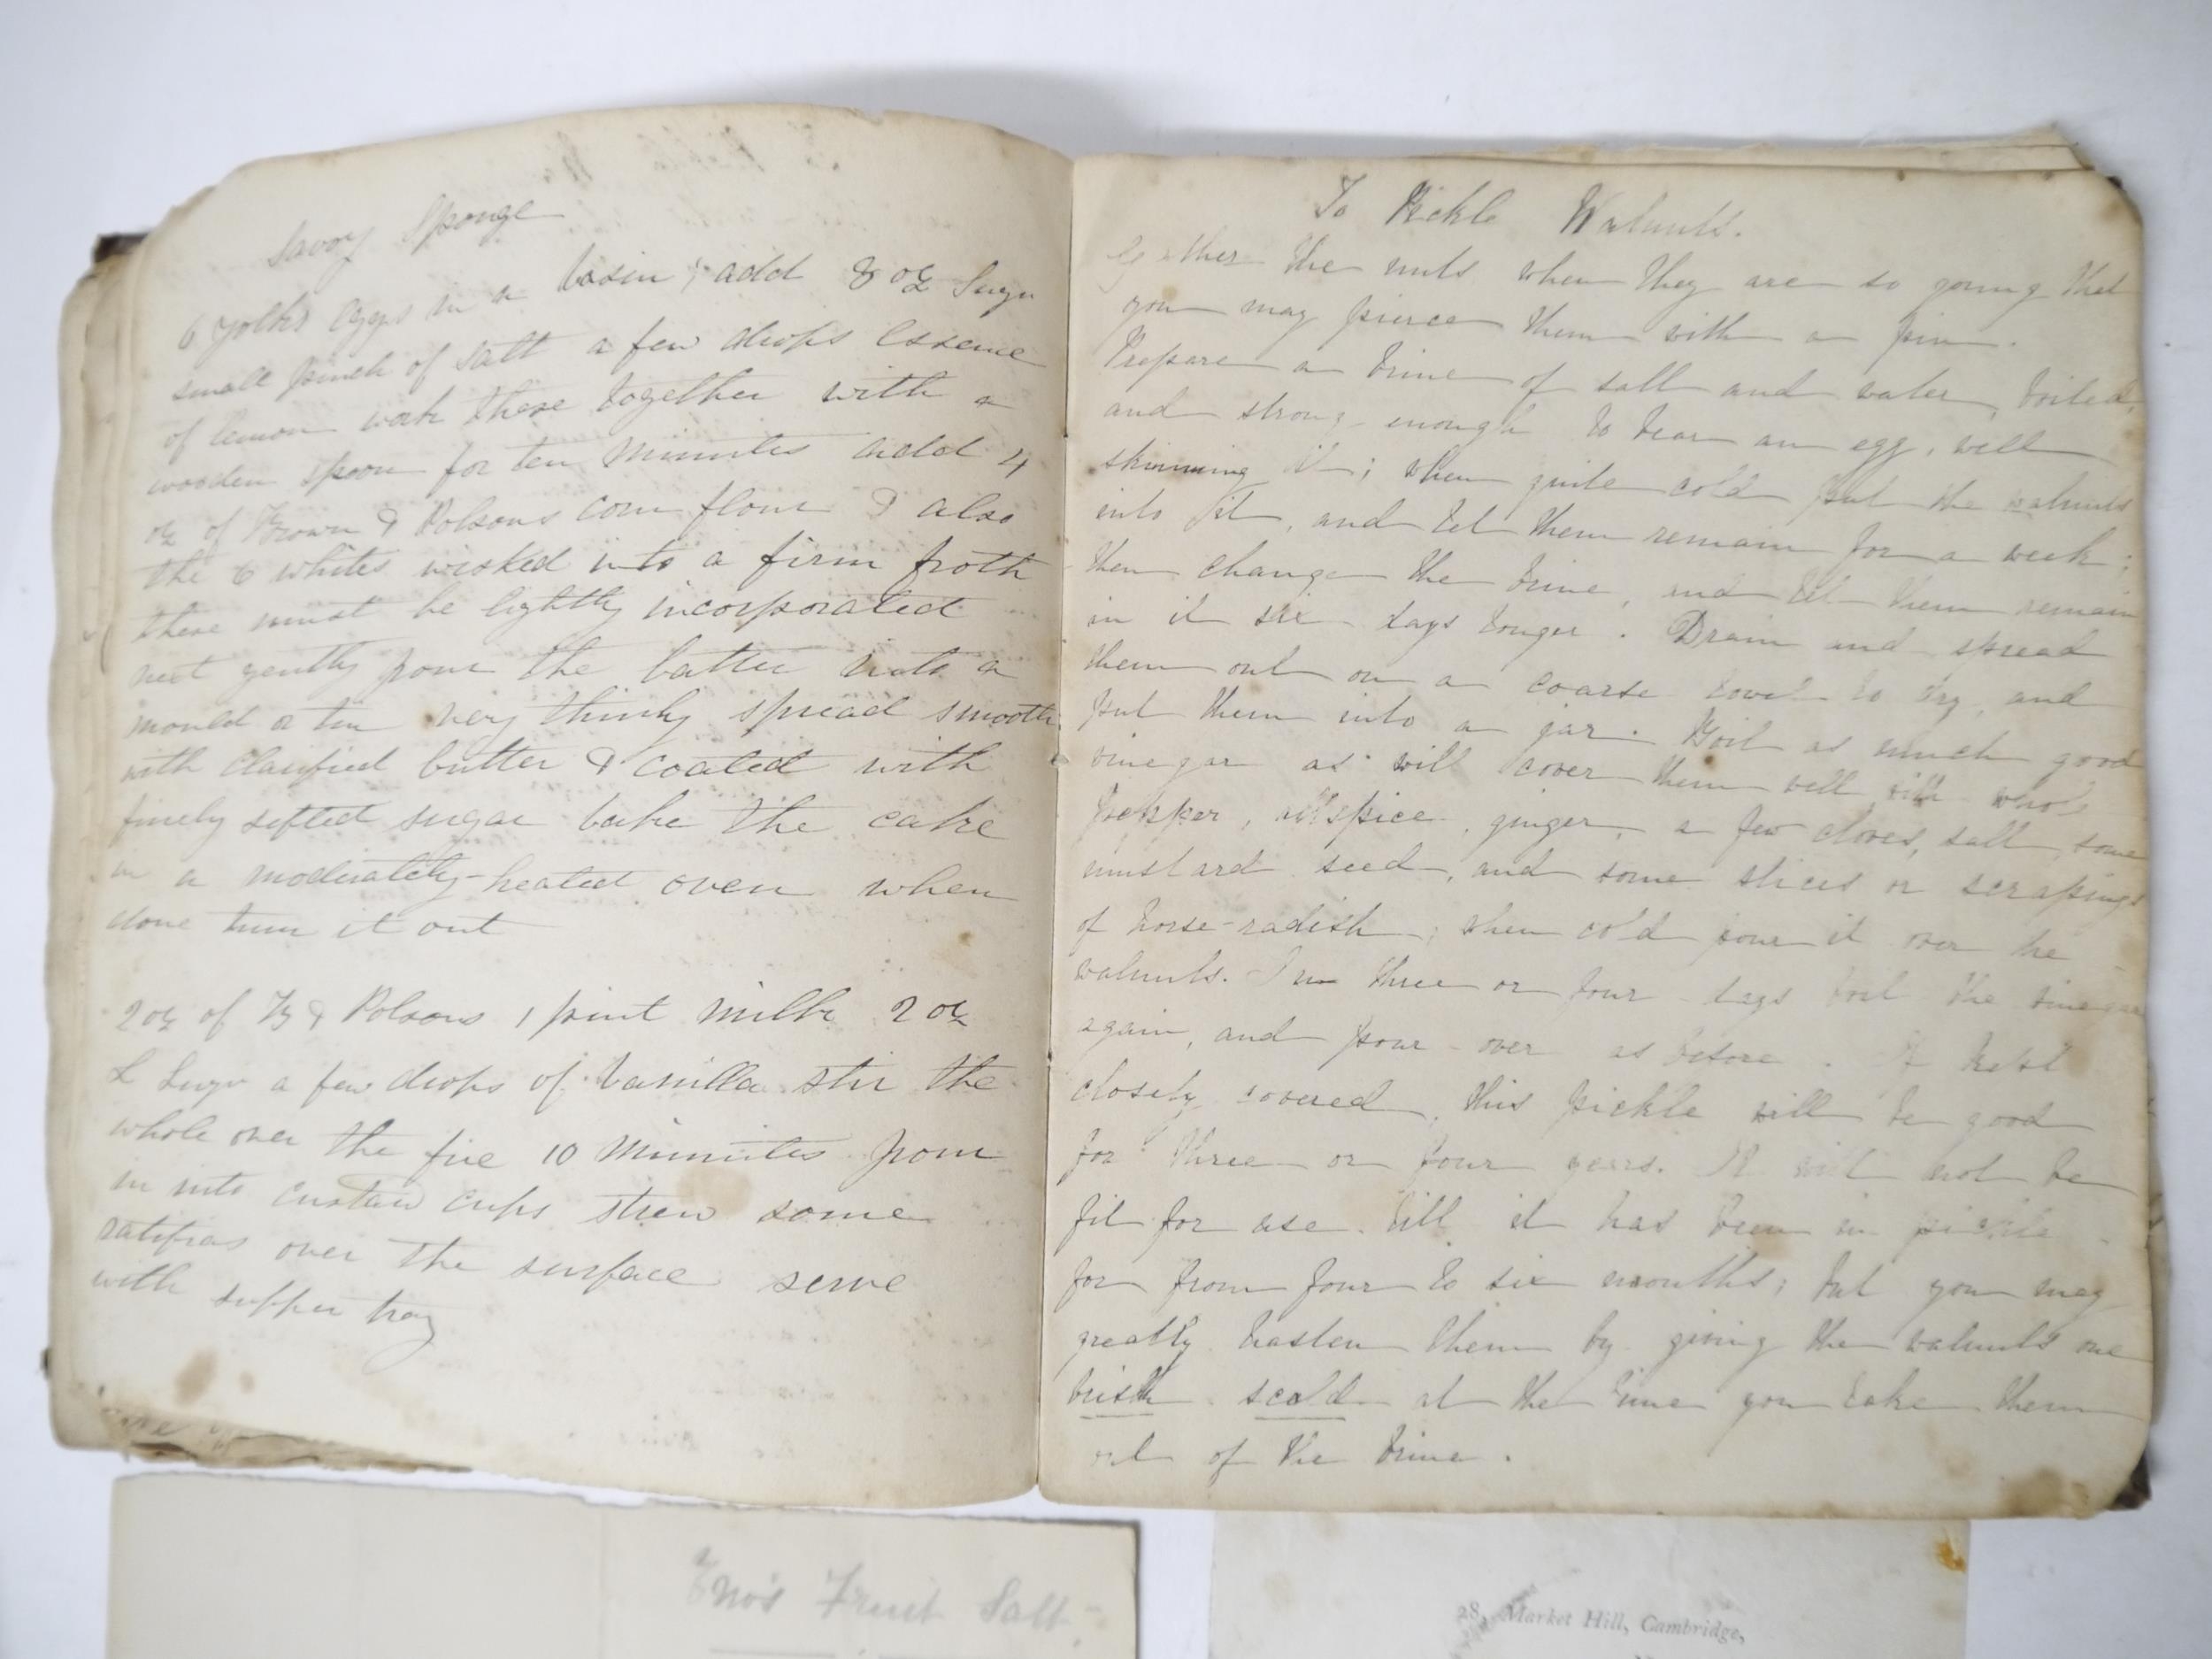 Savoy Sponge
6 yolks eggs in a basin ; add 8 oz Sugr
small pinch of salt a few drops essence
of lemon work these together with a
wooden spoon for ten minutes add 4
oz of Brown & Polsons corn flour & also
the 6 whites wisked into a firm froth
these must be lightly incorporated
next gently pour the batter into a
mould a tin very thinly spread smooth
with clarified butter & coated with
finely sifted sugar bake the cake
in a moderately-heated oven when
done turn it out
2 oz of B & Polsons 1 pint milk 2 oz
L Sugr a few drops of Vanilla stir the
whole over the fire 10 minutes pour
in into custard cups strew some
ratifias over the surface serve
with supper tray
To Pickle Walnuts.
Gather the nuts when they are so young that
you may pierce them with a pin.
Prepare a brine of salt and water, boiled,
and strong enough to bear an egg, well
skimming it; when quite cold put the walnuts
into it, and let them remain for a week;
then change the brine, and let them remain
in it six days longer. Drain and spread
them out on a coarse towel to dry, and
put them into a jar. Boil as much good
vinegar as will cover them well with whole
pepper, allspice, ginger, a few cloves, salt, some
mustard seed, and some slices or scrapings
of horse-radish; when cold pour it over the
walnuts. In three or four days boil the vinegar
again, and pour over as before. If kept
closely covered, this pickle will be good
for three or four years. It will not be
fit for use till it has been in pickle
for from four to six months; but you may
greatly hasten them by giving the walnuts one
brisk scald at the time you take them
out of the brine.
Eno's Fruit Salt
28, Market Hill, Cambridge,